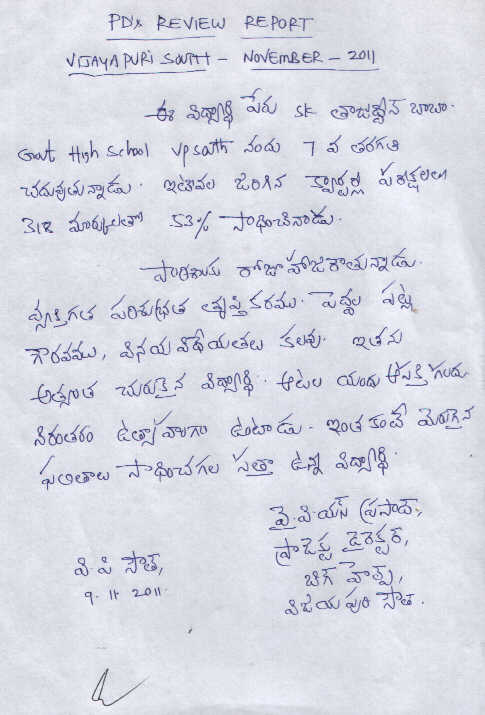 PDx REVIEW REPORT
VIJAYAPURI SOUTH - NOVEMBER - 2011
ఈ విద్యార్థి పేరు SK తాజుద్దీన్ బాబా.
Govt High School VP South నందు 7 వ తరగతి
చదువుతున్నాడు. ఇటీవల జరిగిన క్వార్టర్లీ పరీక్షలలో
318 మార్కులతో 53% సాధించినాడు.
పాఠశాలకు రోజూ హాజరౌతున్నాడు.
వ్యక్తిగత పరిశుభ్రత తృప్తికరము. పెద్దల పట్ల
గౌరవము, వినయ విధేయతలు కలవు. ఇతను
అత్యంత చురుకైన విద్యార్థి. ఆటల యందు ఆసక్తి గలదు.
నిరంతరం ఉత్సాహంగా ఉంటాడు. ఇంత కంటే మెరుగైన
ఫలితాలు సాధించగల సత్తా ఉన్న విద్యార్థి
వై.వి.యస్ ప్రసాద్,
ప్రాజెక్టు డైరెక్టర్,
బిగ్ హెల్ప్,
విజయపురి సౌత్.
వి పి సౌత్,
9.11.2011.